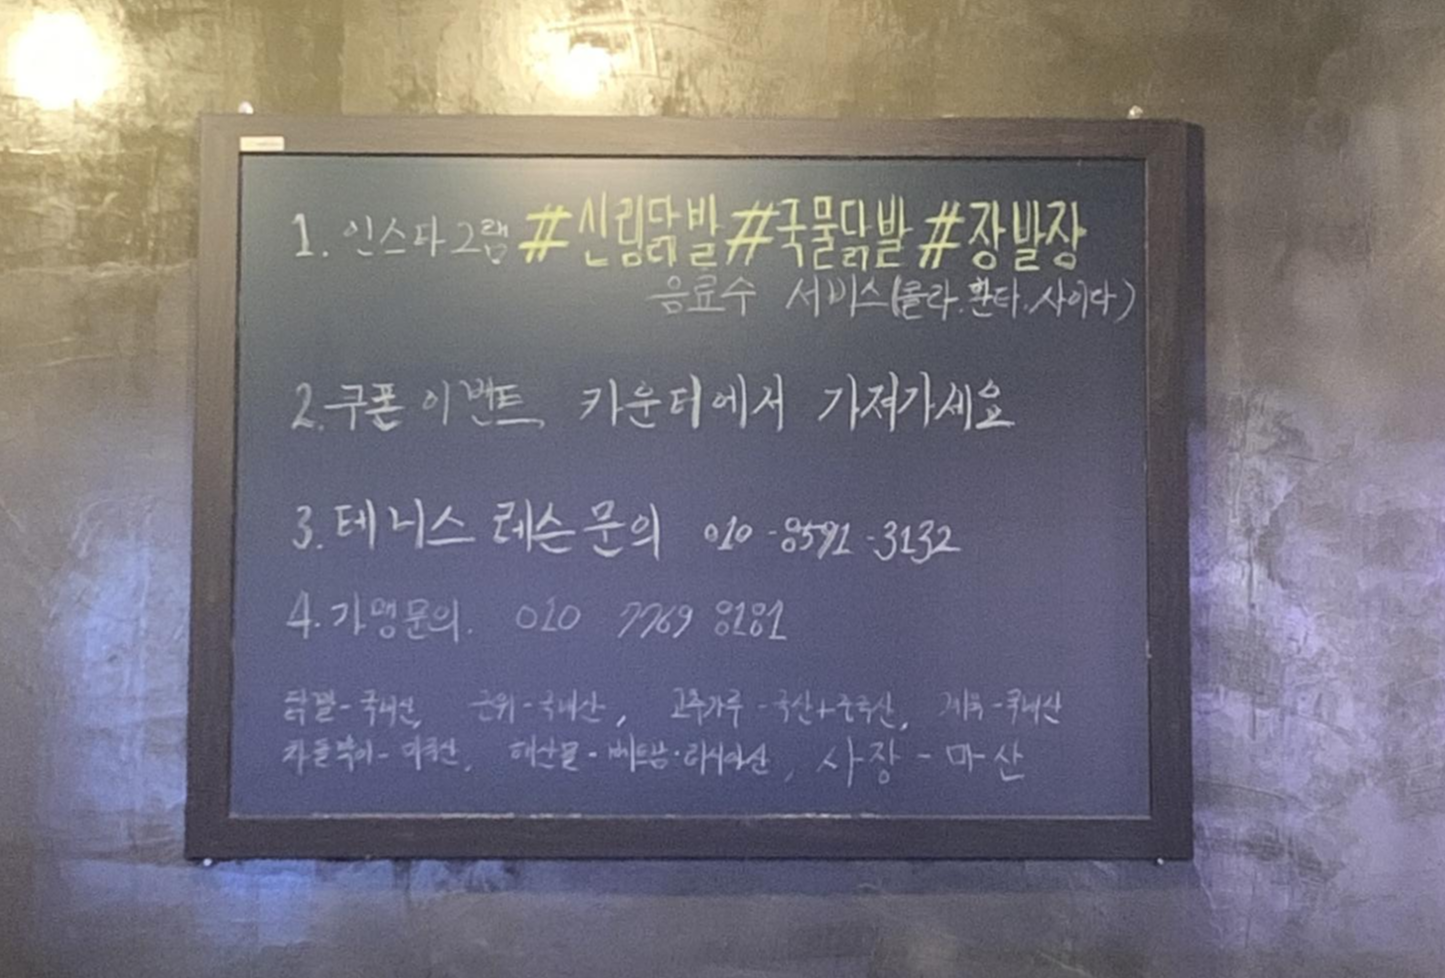 1. 인스타그램 #신림닭발 #국물닭발 #장발장
음료수 서비스(콜라.환타.사이다)
2. 쿠폰 이벤트 카운터에서 가져가세요
3. 테니스 레슨문의 010-8591-3132
4. 가맹문의. 010 7769 8181
닭발-국내산, 근위-국내산, 고추가루-국산+중국산, 제육-국내산
차돌박이-미국산, 해산물-베트남·러시아산, 사장-마산